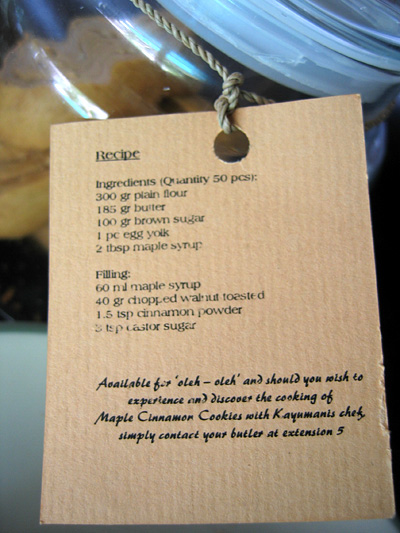 Recipe
Ingredients (Quantity 50 pcs):
300 gr plain flour
185 gr butter
100 gr brown sugar
1 pc egg yolk
2 tbsp maple syrup
Filling:
60 ml maple syrup
40 gr chopped walnut toasted
1.5 tsp cinnamon powder
3 tsp castor sugar
Available for 'oleh – oleh' and should you wish to
experience and discover the cooking of
Maple Cinnamon Cookies with Kayumanis chef,
simply contact your butler at extension 5